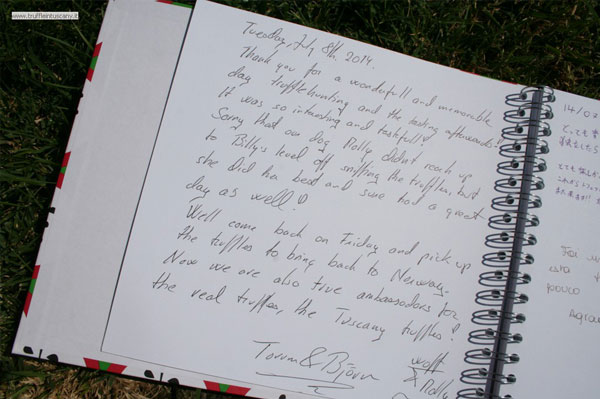 www.truffleintuscany.it
Tuesday, July 8th. 2014.
Thank you for a wonderfull and memorable
day trufflehunting and the tasting afterwards!
It was so intersting and tastfull!
Sorry that our dog Molly didn't reach up
to Billy's level off sniffing the truffles, but
she did her best and sure had a great
day as well!
We'll come back on Friday and pick up
the truffles to bring back to Norway.
Now we are also true ambassadors for
the real truffles, the Tuscany truffles!
Torum & Björn
woff
& Molly
14/02
esta
pouco